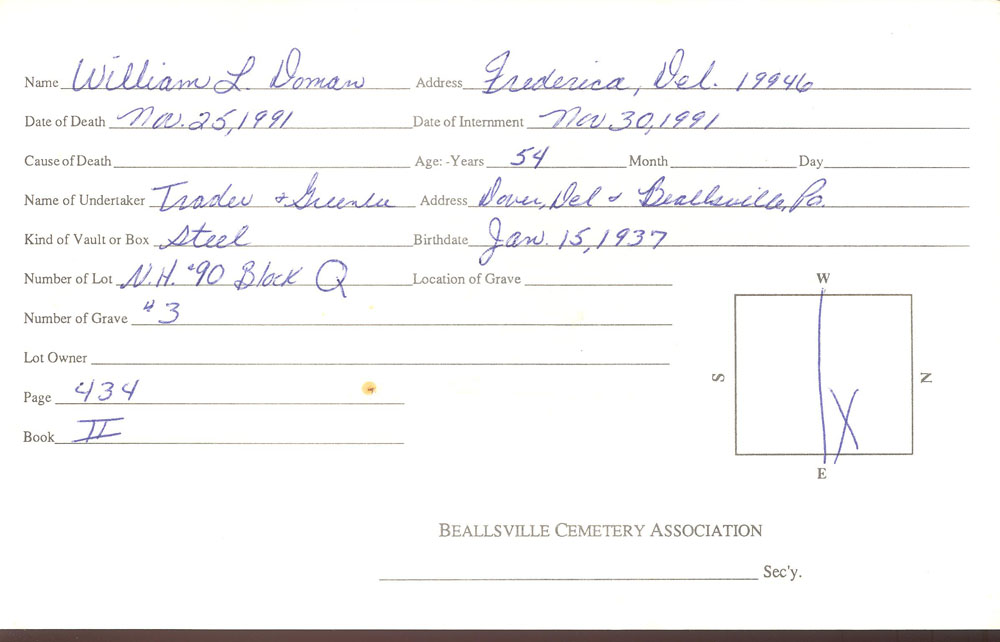 Name William L. Doman Address Frederica, Del. 19946
Date of Death Nov. 25, 1991 Date of Internment Nov 30, 1991
Cause of Death Age: -Years 54 Month Day
Name of Undertaker Trader & Greenlee Address Dover, Del & Beallsville, Pa.
Kind of Vault or Box Steel Birthdate Jan. 15, 1937
Number of Lot N.H. #90 Block Q Location of Grave
Number of Grave #3
Lot Owner
Page 434
Book II
W
S
N
X
E
BEALLSVILLE CEMETERY ASSOCIATION
Sec'y.